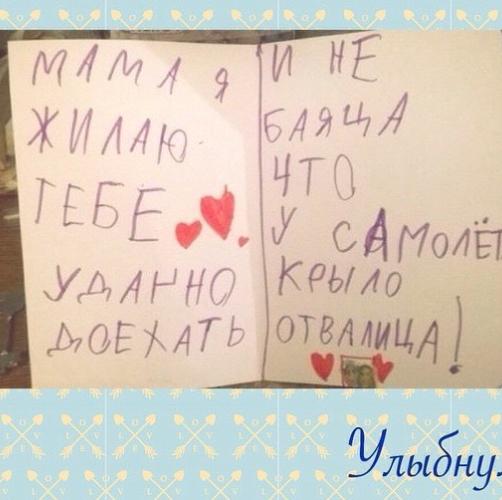 МАМА Я
ЖИЛАЮ
ТЕБЕ
УДАЧНО
ДОЕХАТЬ
И НЕ
БАЯЦА
ЧТО
У САМОЛЁТ
КРЫЛО
ОТВАЛИЦА!
Улыбну